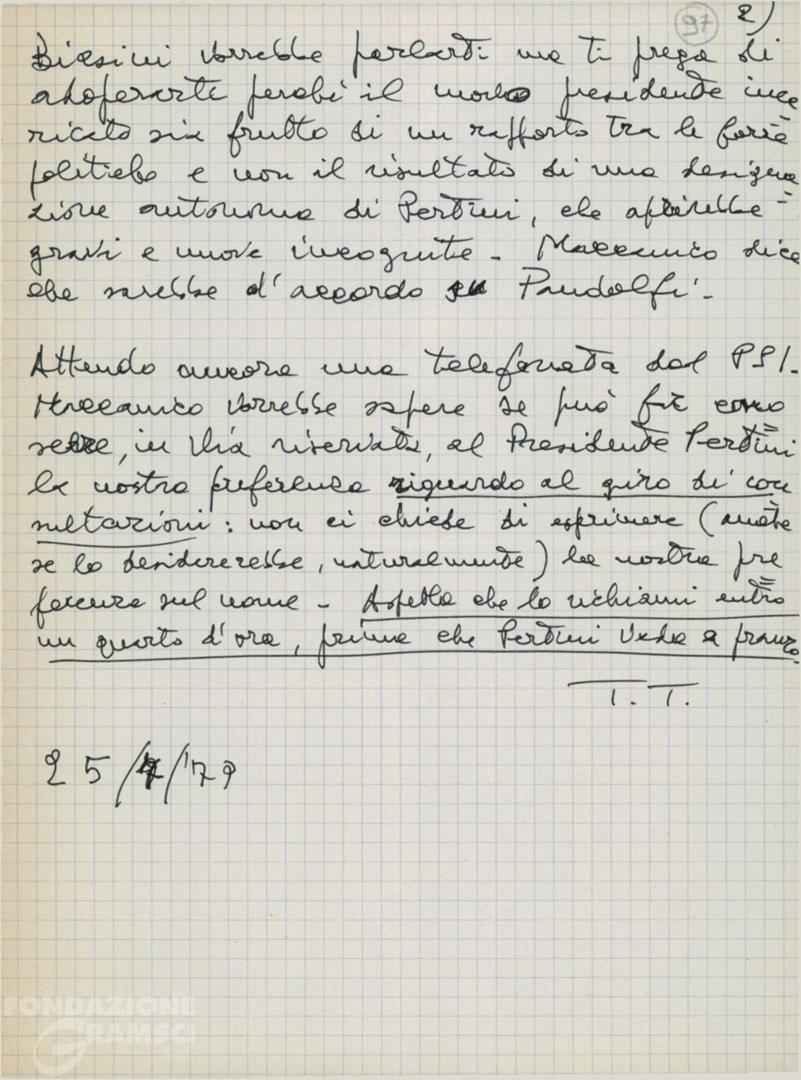 97
2)
Biasini vorrebbe parlarti: ma ti prega di
adoperarti perché il nuovo presidente inca=
ricato sia frutto di un rapporto tra le forze
politiche e non il risultato di una designa=
zione autonoma di Pertini, che aprirebbe
gravi e nuove incognite - Maccanico dice
che sarebbe d'accordo su Pandolfi -
Attendo ancora una telefonata dal PSI -
Maccanico vorrebbe sapere se può far cono=
scere, in via riservata, al Presidente Pertini
la nostra preferenza riguardo al giro di con
sultazioni: non ci chiede di esprimere (anche
se lo desidererebbe, naturalmente) la nostra pre=
ferenza sul nome - Aspetta che lo richiami entro
un quarto d'ora, prima che Pertini vada a pranzo.
T. T.
25/7/'79
FONDAZIONE
GRAMSCI